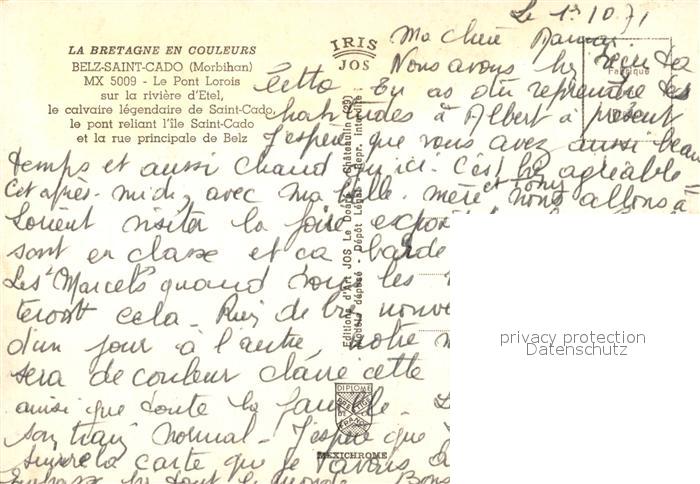 LA BRETAGNE EN COULEURS
BELZ-SAINT-CADO (Morbihan)
MX 5009 - Le Pont Lorois
sur la rivière d'Etel,
le calvaire légendaire de Saint-Cado,
le pont reliant l'île Saint-Cado
et la rue principale de Belz
IRIS
JOS
Editions d'Art JOS Le Doaré - Châteaulin (29)
Modèle déposé - Dépôt Légal - Repr. Interdite
DIPLOME
MEXICHROME
Le 1r 10 71
Ma chère Maman
Nous avons bien reçu ta
lettre Tu as dû reprendre tes
habitudes à Albert à présent
J'espère que vous avez aussi beau
temps et aussi chaud qu'ici. C'est très agréable
Cet après-midi, avec ma belle-mère et nous allons à
Lorient visiter la foire exposition
sont en classe et ça barde
Les Marcels quand les
cela - Rien de bien
d'un jour à l'autre notre
sera de couleur claire cette
ainsi que toute la famille -
son train normal - J'espère que
la carte que je t'avais
tout le monde - Bons
privacy protection
Datenschutz